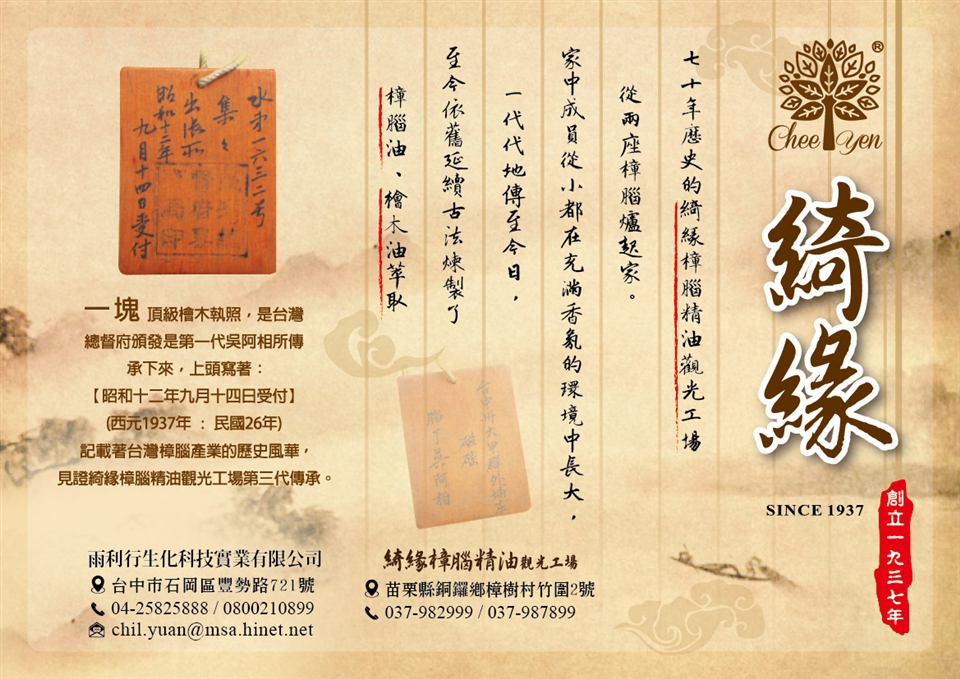 Chee Yen
®
綺緣
SINCE 1937
創立一九三七年
七十年歷史的綺緣樟腦精油觀光工場
從兩座樟腦爐起家。
家中成員從小都在充滿香氣的環境中長大，
一代代地傳至今日，
至今依舊延續古法煉製了
樟腦油、檜木油萃取
水第一六三二号
集々
出張所
昭和十二年
九月十四日受付
一塊 頂級檜木執照，是台灣
總督府頒發是第一代吳阿相所傳
承下來，上頭寫著：
【昭和十二年九月十四日受付】
(西元1937年 : 民國26年)
記載著台灣樟腦產業的歷史風華，
見證綺緣樟腦精油觀光工場第三代傳承。
腦丁吳阿相
雨利行生化科技實業有限公司
台中市石岡區豐勢路721號
04-25825888 / 0800210899
chil.yuan@msa.hinet.net
綺緣樟腦精油觀光工場
苗栗縣銅鑼鄉樟樹村竹圍2號
037-982999 / 037-987899